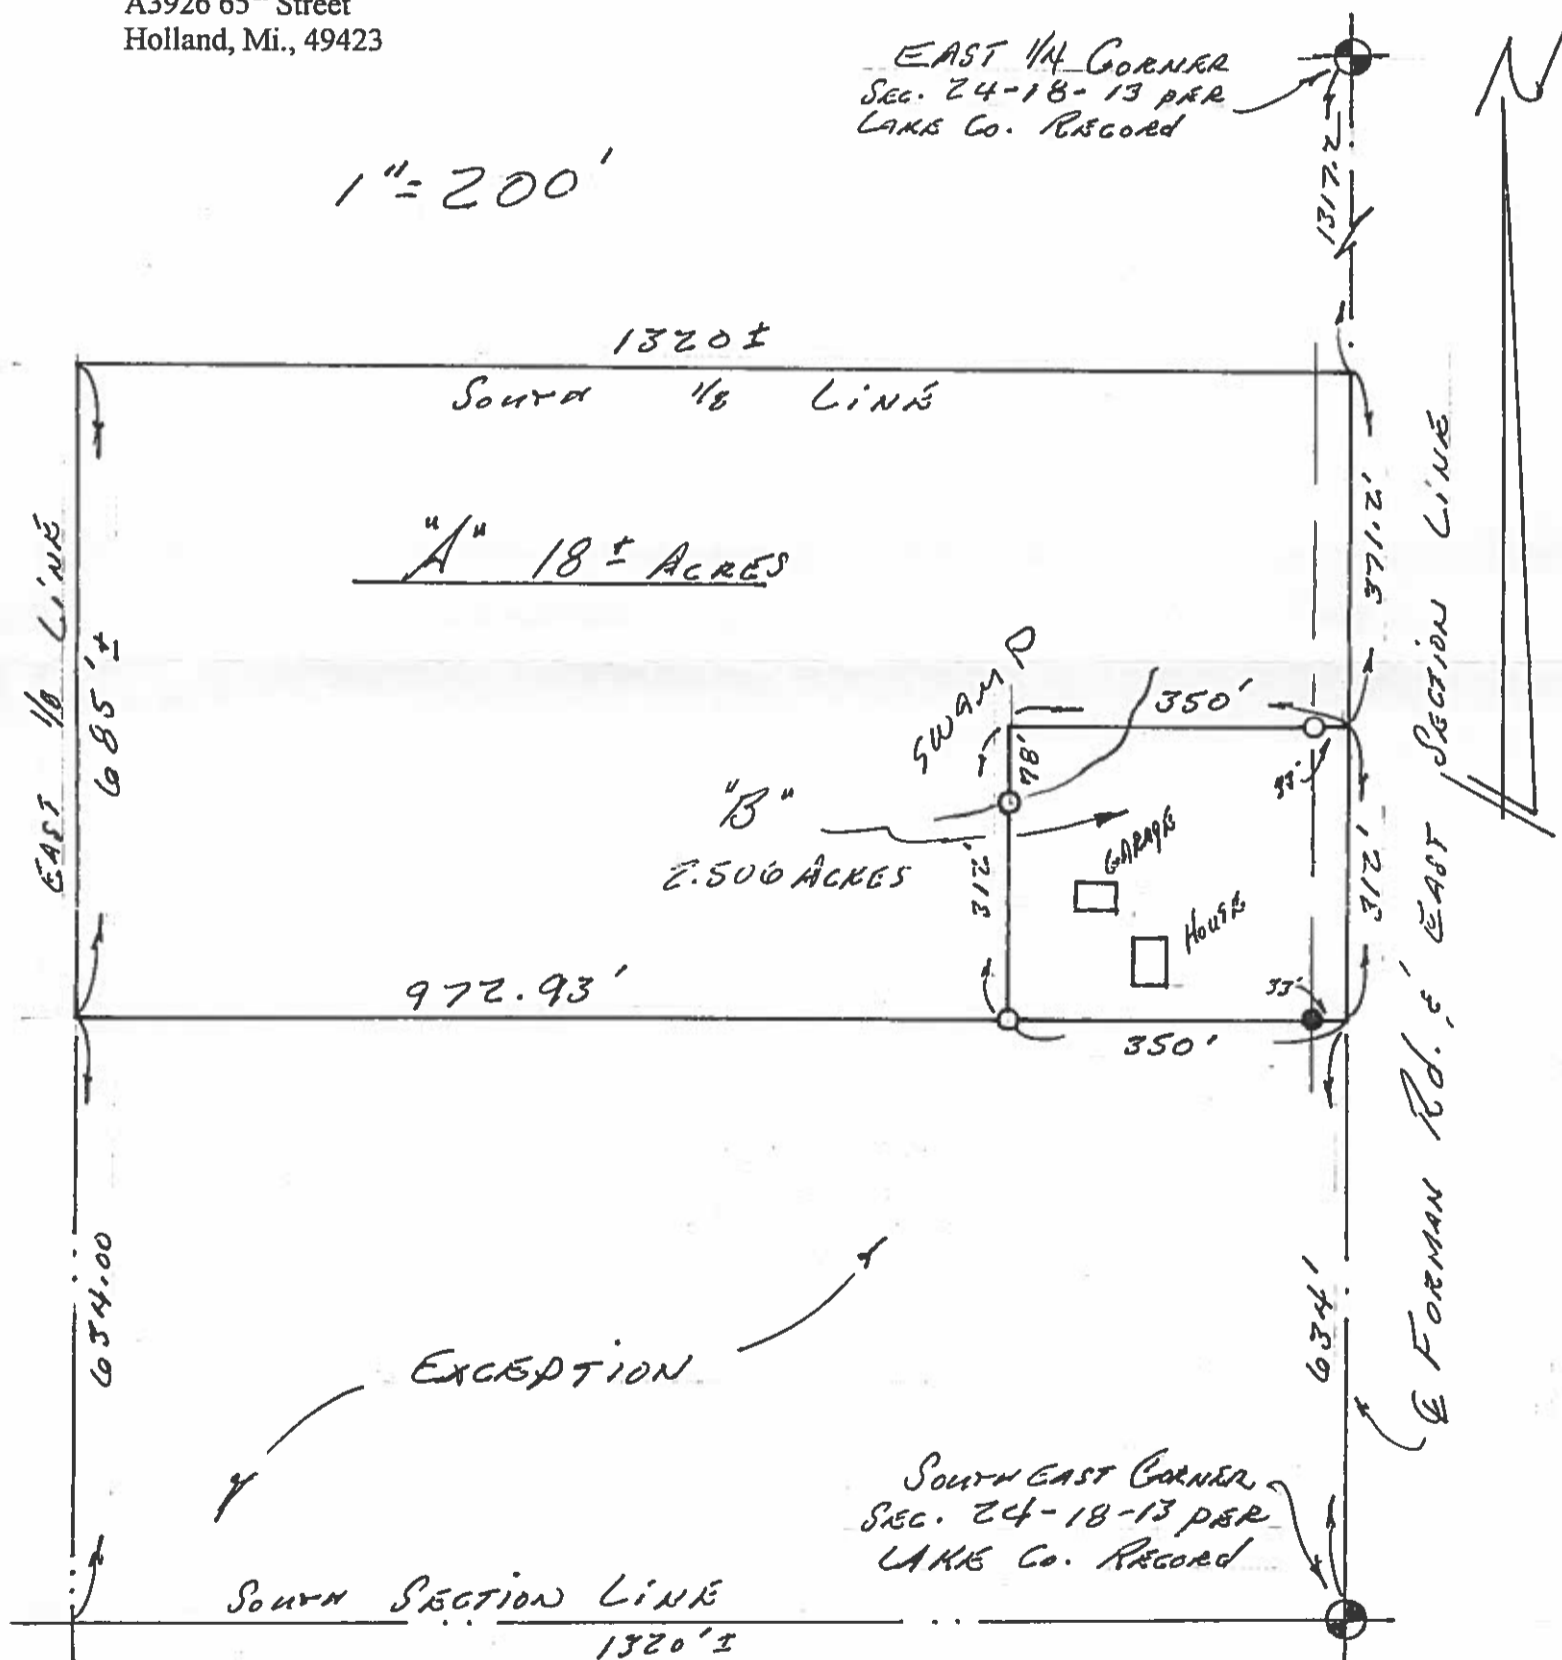 A3926 65th Street
Holland, Mi., 49423
EAST 1/4 CORNER
SEC. 24-18-13 PER
LAKE CO. RECORD
N
1317.2
1"= 200'
1320 ±
SOUTH 1/8 LINE
"A" 18 ± ACRES
EAST 1/8 LINE
685' ±
371.2'
SWAMP
350'
33'
78'
"B"
2.506 ACRES
312'
GARAGE
HOUSE
312'
33'
972.93'
350'
℄ FORMAN Rd. & EAST SECTION LINE
634.00
634'
EXCEPTION
SOUTHEAST CORNER
SEC. 24-18-13 PER
LAKE CO. RECORD
SOUTH SECTION LINE
1320' ±